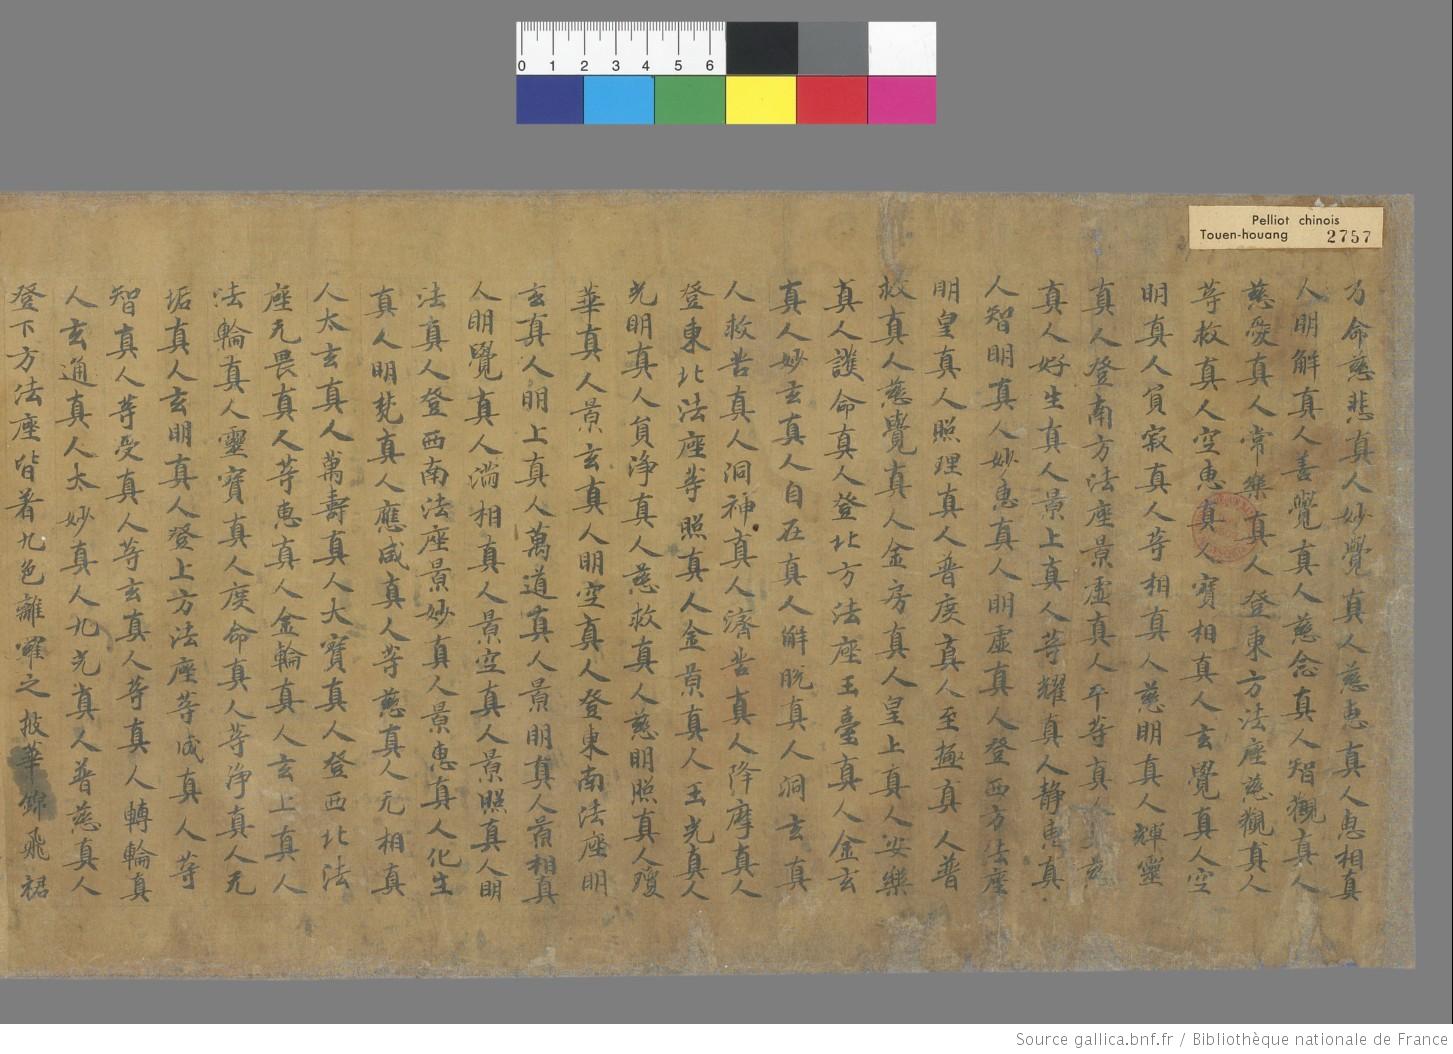 0 1 2 3 4 5 6
Pelliot chinois
Touen-houang 2757
乃命慈悲真人妙覺真人慈惠真人惠相真
人明解真人善覺真人慈念真人智觀真人
慈愛真人常樂真人登東方法座慈觀真人
等救真人空惠真人寶相真人玄覺真人空
明真人負寂真人等相真人慈明真人輝靈
真人登南方法座景虛真人平等真人慈
真人好生真人景上真人等耀真人靜惠真
人智明真人妙惠真人明虛真人登西方法座
明皇真人照理真人普度真人至極真人普
救真人慈覺真人金房真人皇上真人安樂
真人護命真人登北方法座玉臺真人金玄
真人妙玄真人自在真人解脫真人洞玄真
人救苦真人洞神真人濟苦真人降摩真人
登東北法座等照真人金景真人玉光真人
光明真人負淨真人慈救真人慈明照真人瓊
華真人景玄真人明空真人登東南法座明
玄真人明上真人萬道真人景明真人首相真
人明覺真人滿相真人景空真人景照真人明
法真人登西南法座景妙真人景惠真人化生
真人明梵真人應成真人等慈真人无相真
人太玄真人萬壽真人大寶真人登西北法
座无畏真人等惠真人金輪真人玄上真人
法輪真人靈寶真人度命真人等淨真人无
垢真人玄明真人登上方法座等成真人等
智真人等受真人等玄真人等真人轉輪真
人玄通真人太妙真人九光真人普慈真人
登下方法座皆著九色離羅之披華錦飛裙
Source gallica.bnf.fr / Bibliothèque nationale de France